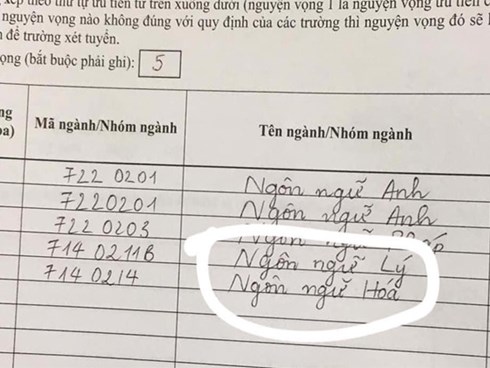 xếp theo thứ tự ưu tiên từ trên xuống dưới (nguyện vọng 1 là nguyện vọng ưu tiên c
nguyện vọng nào không đúng với quy định của các trường thì nguyện vọng đó sẽ
để trường xét tuyển.
ọng (bắt buộc phải ghi): 5
Mã ngành/Nhóm ngành Tên ngành/Nhóm ngành
722 0201 Ngôn ngữ Anh
7220201 Ngôn ngữ Anh
722 0203 Ngôn ngữ
714 0211B Ngôn ngữ Lý
714 0214 Ngôn ngữ Hóa